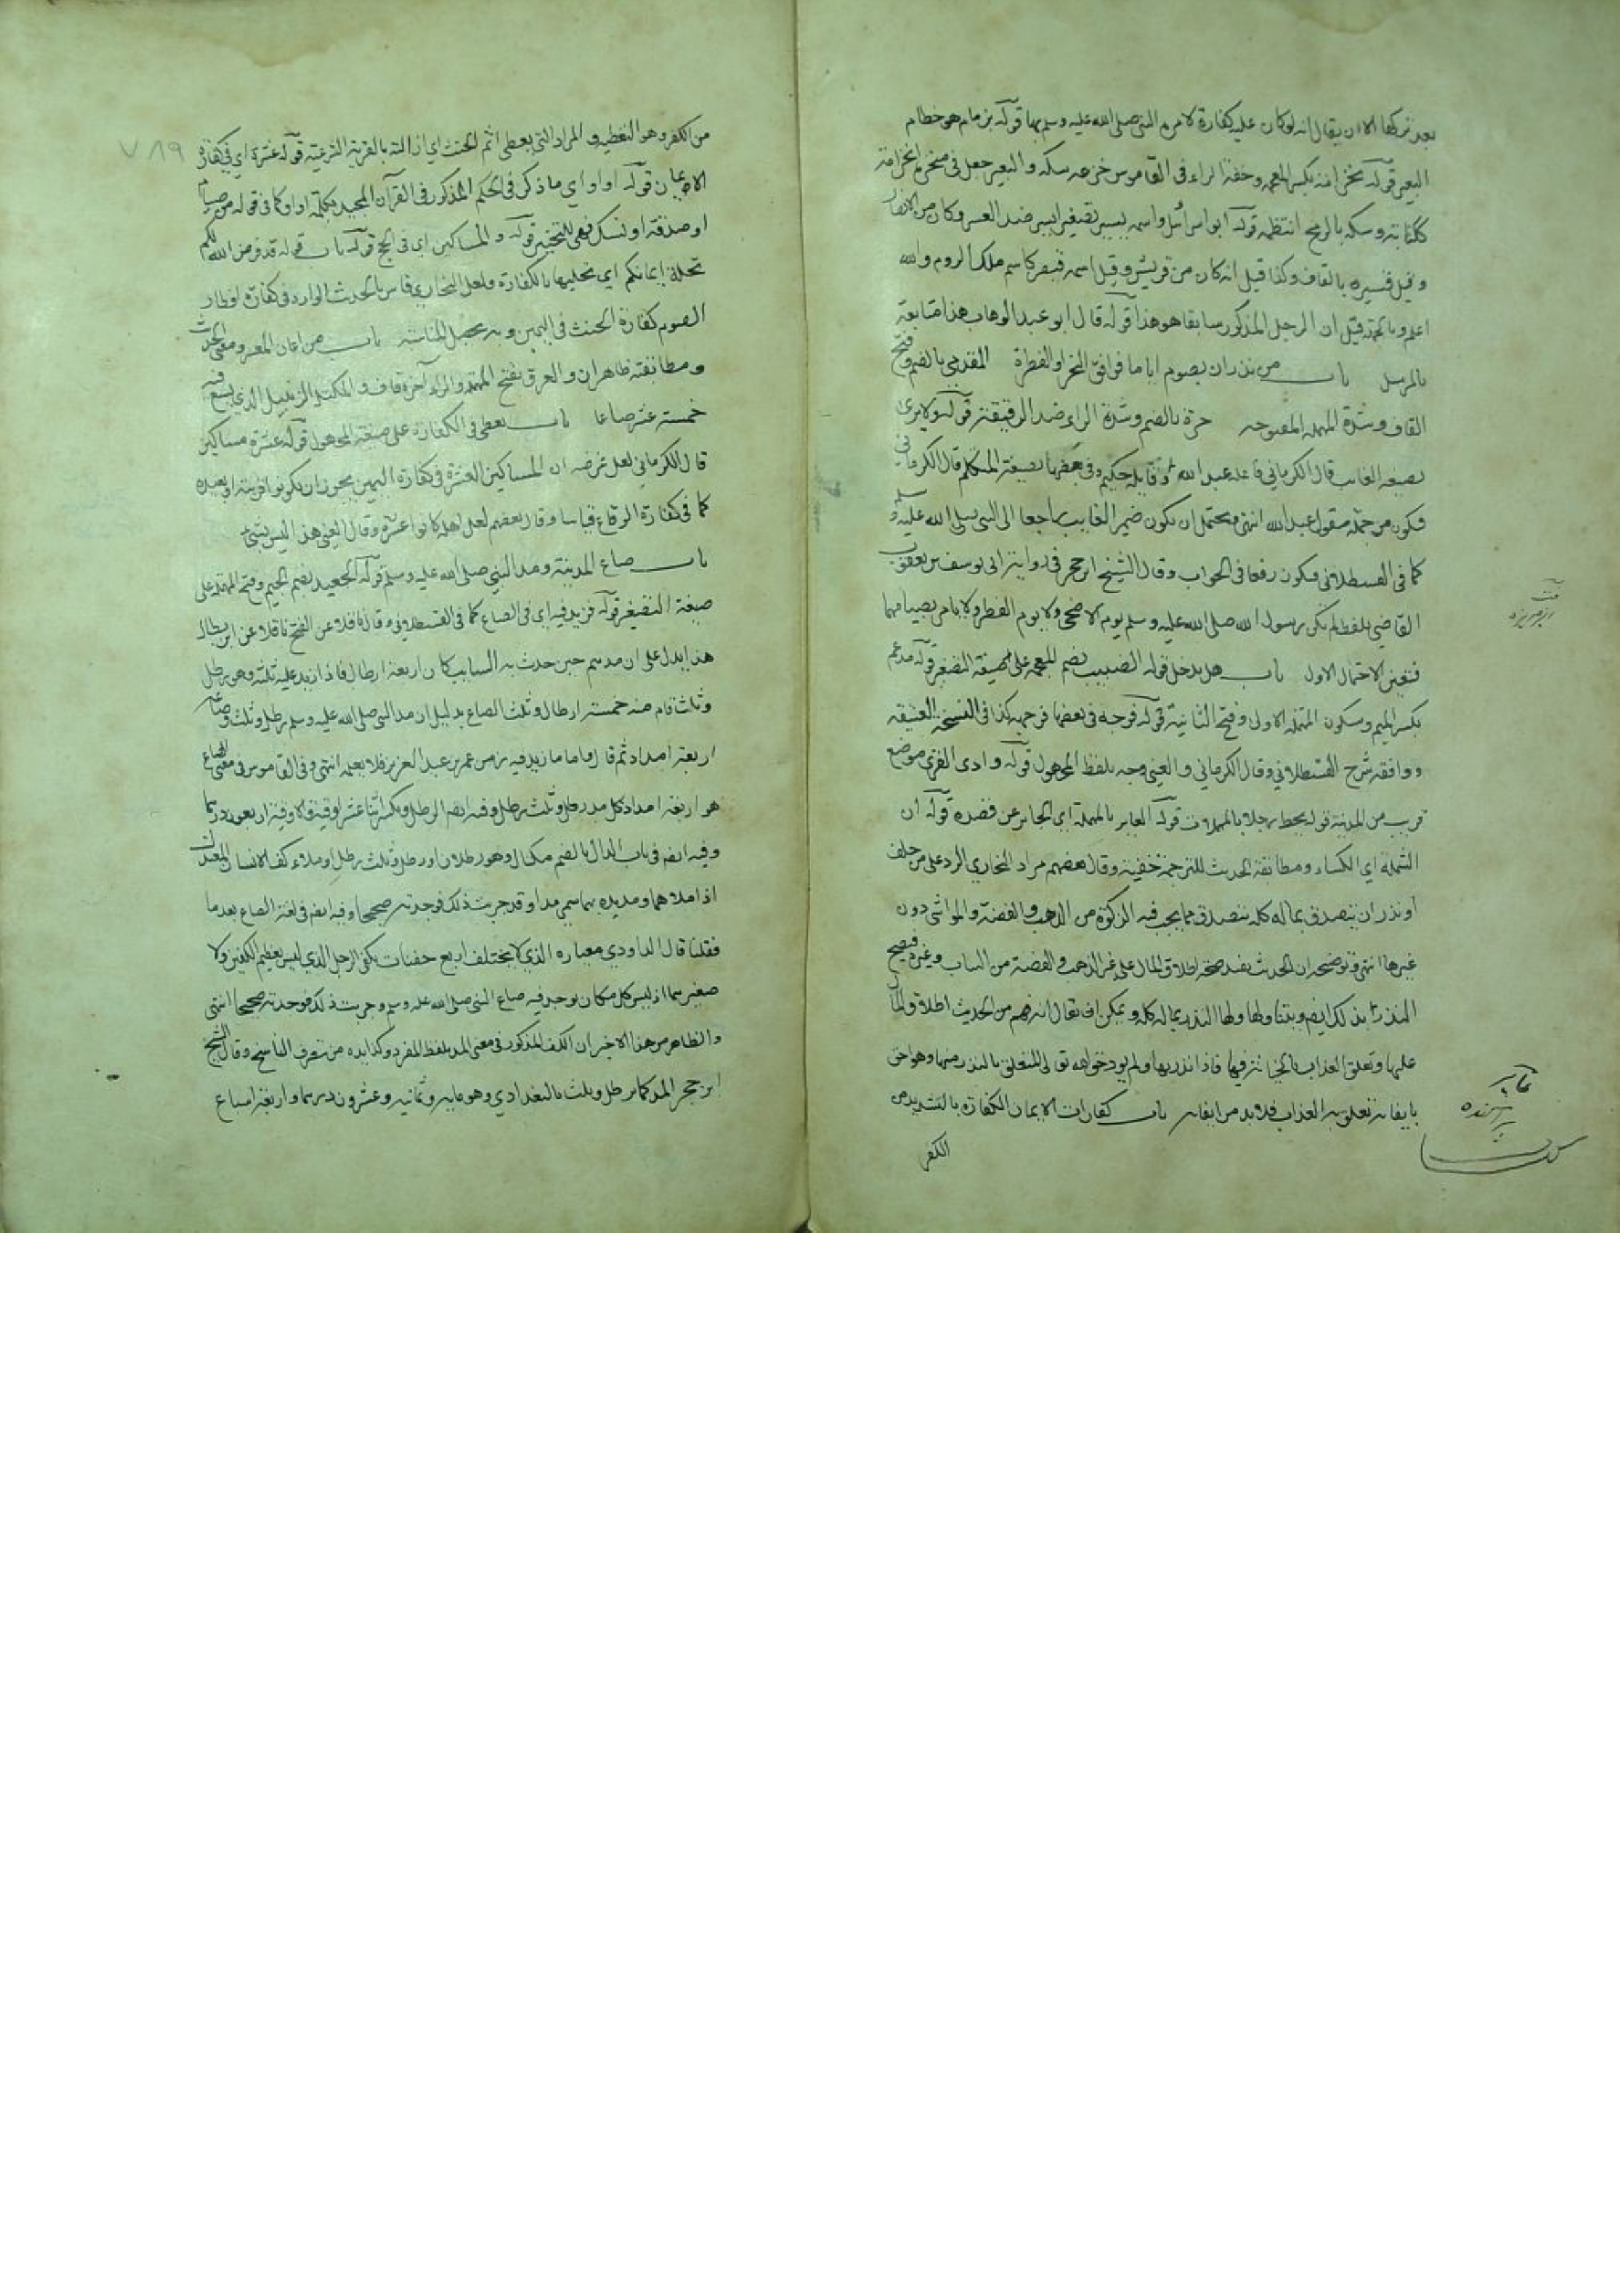 بعد تركها الا ان يقال انه لو كان عليه كفارة لامره النبي صلى الله عليه وسلم بها قوله بزمام هو خطام
البعير قوله بخزامة بكسر المعجمة وخفة الراء في القاموس خزمه سكه والبعير جعل في منخره الخزامة
ككتابة وسكه بالرمح انتظمه قوله ابو اسرائيل واسمه يسير تصغير يسير ضد العسر وكان من الانصار
وقيل قشير بالقاف وكذا قيل انه كان من قريش وقيل اسمه قيصر كاسم ملك الروم والله
اعلم قيل ان الرجل المذكور سابقا هو هذا قوله قال ابو عبد الوهاب هذا متابعة
بالمرسل باب من نذر ان يصوم اياما فوافق النحر او الفطر المقدمي بالضم وفتح
القاف وشدة المهملة المفتوحة حرة بالضم وشدة الراء ضد الرقيقة قوله ولا يرى
بصيغة الغائب قال الكرماني فاعله عبد الله وقايله حكيم وفي بعضها بصيغة المتكلم قال الكرماني
فيكون من جملة مقول عبد الله انتهى ويحتمل ان يكون ضمير الغايب راجعا الى النبي صلى الله عليه وسلم
كما في القسطلاني فيكون رفعا في الجواب وقال الشيخ ابن حجر في رواية ابي يوسف بن يعقوب
القاضي بلفظ لم يكن رسول الله صلى الله عليه وسلم يوم الاضحى ولا يوم الفطر ولا يامر بصيامهما
فتعين الاحتمال الاول باب هل يدخل قوله الضبيب بضم المعجمة على صيغة المصغر قوله مدعم
بكسر الميم وسكون المهملة الاولى وفتح الثانية قوله فوجه في بعضها فوجهه كذا في النسخة العتيقة
ووافقه شرح القسطلاني وقال الكرماني والعيني وجه بلفظ المجهول قوله وادى القرى موضع
قريب من المدينة قوله يحط رجلا بالمهملات قوله العاير بالمهملة اي الجاير عن قصده قوله ان
الشملة اي الكساء ومطابقة الحديث للترجمة خفية وقال بعضهم مراد البخاري الرد على من حلف
او نذر ان يتصدق بماله كله يتصدق مما يجب فيه الزكوة من الذهب والفضة والمواشي دون
غيرها انتهى وتوضيحه ان الحديث يفيد صحة اطلاق المال على غير الذهب والفضة من الثياب وغيره فيصح
النذر بذلك ايضا ويتناولها النذر بماله كله ويمكن ان يقال انه فهم من الحديث اطلاق المال
عليها وتعلق العذاب فيها فاذا نذر بها ولم يود تعالى المتعلق بالنذر منها وهو احق
بايفائه تعلق به العذاب فلا بد من ايفائه باب كفارات الايمان الكفارة بالتشديد من
الكفر
من الكفر وهو التغطية والمراد التي يعطى اثم الحنث اي ازالته بالقربة الشرعية قوله عشرة اي في كفارة
الايمان قوله او او اي ما ذكر في الحكم المذكور في القرآن المجيد بكلمة او او كما في قوله من صيام
او صدقة او نسك فهي للتخيير قوله والمساكين اي في الحج قوله باب قوله قد فرض الله لكم
تحلة ايمانكم اي تحليلها بالكفارة ولعل البخاري قاس بالحديث الوارد في كفارة افطار
الصوم كفارة الحنث في اليمين وبه يحصل المناسبة باب من اعان المعسر ومعنى الحديث
ومطابقته ظاهران والعرق بفتح المهملة والراء آخره قاف والمكتل الزنبيل الذي يسع فيه
خمسة عشر صاعا باب يعطى في الكفارة على صيغة المجهول قوله عشرة مساكين
قال الكرماني لعل غرضه ان المساكين العشرة في كفارة اليمين يجوز ان يكونوا قريبة او بعيدة
كما في كفارة الوقاع قياسا وقال بعضهم لعل اهله كانوا عشرة وقال العيني هذا ليس بشيء
باب صاع المدينة ومد النبي صلى الله عليه وسلم قوله الجعيد بضم الجيم وفتح المهملة على
صيغة التصغير قوله فزيد فيه اي في الصاع كما في القسطلاني وقال ناقلا عن الفتح ناقلا عن ابن بطال
هذا يدل على ان مدهم حين حدث به السايب كان اربعة ارطال فاذا زيد عليه ثلثه وهو رطل
وثلث قام منه خمسة ارطال وثلث الصاع بدليل ان مد النبي صلى الله عليه وسلم رطل وثلث وصاعه
اربعة امداد ثم قال واما ما زيد فيه زمن عمر بن عبد العزيز فلا يعلمه انتهى وفي القاموس في معنى الصاع
هو اربعة امداد كل مد رطل وثلث رطل وفيه ايضا الرطل ويكسر اثنتا عشرة اوقية والاوقية اربعون درهما
وفيه ايضا في باب الدال بالضم مكيال وهو رطلان او رطل وثلث رطل او ملاء كف الانسان المعتدل
اذا ملاهما ومد يده بهما سمي مدا وقد جربت ذلك فوجدته صحيحا وفيه ايضا في لغة الصاع بعد ما
نقلنا قال الداودي معياره الذي لا يختلف اربع حفنات بكفي الرجل الذي ليس بعظيم الكفين ولا
صغيرهما اذ ليس كل مكان يوجد فيه صاع النبي صلى الله عليه وسلم وجربت ذلك فوجدته صحيحا انتهى
والظاهر من هذا الاخير ان الكف المذكور في معنى المد بلفظ المفرد وكذا يده من تصرف الناسخ وقال الشيخ
ابن حجر المد كما مر رطل وثلث بالبغدادي وهو مايه وثمانيه وعشرون درهما واربعة اسباع